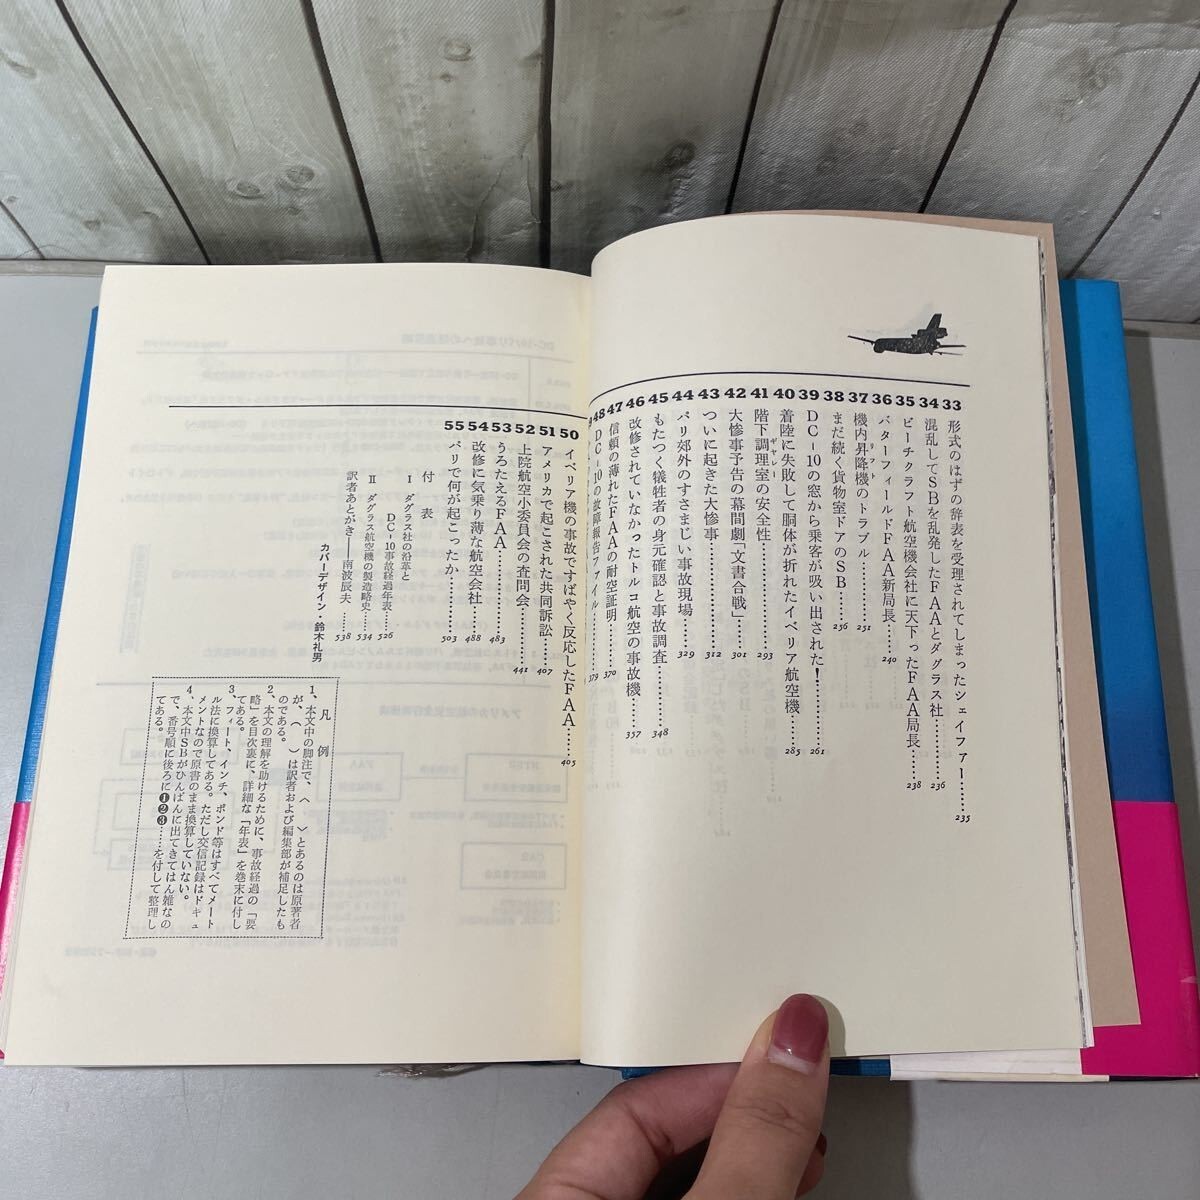 33 形式のはずの辞表を受理されてしまったシェイファー……235
34 混乱してSBを乱発したFAAとダグラス社……236
35 ビーチクラフト航空機会社に天下ったFAA局長……238
36 バターフィールドFAA新局長……240
37 機内昇降機のトラブル……251
リフト
38 まだ続く貨物室ドアのSB……256
39 DC-10の窓から乗客が吸い出された!……261
40 着陸に失敗して胴体が折れたイベリア航空機……285
41 階下調理室の安全性……293
ギャレー
42 大惨事予告の幕間劇「文書合戦」……301
43 ついに起きた大惨事……312
44 パリ郊外のすさまじい事故現場……329
45 もたつく犠牲者の身元確認と事故調査……348
46 改修されていなかったトルコ航空の事故機……357
47 信頼の薄れたFAAの耐空証明……370
48 DC-10の故障報告ファイル……379
50 イベリア機の事故ですばやく反応したFAA……405
51 アメリカで起こされた共同訴訟……407
52 上院航空小委員会の査問会……441
53 うろたえるFAA……483
54 改修に気乗り薄な航空会社……488
55 パリで何が起こったか……503
付表
I ダグラス社の沿革と
DC-10事故経過年表……526
II ダグラス航空機の製造略史……534
訳者あとがき——南波辰夫……538
カバーデザイン・鈴木礼男
凡例
1、本文中の脚注で、〈 〉とあるのは原著者
が、( )は訳者および編集部が補足したも
のである。
2、本文の理解を助けるために、事故経過の「要
略」を目次裏に、詳細な「年表」を巻末に付し
てある。
3、フィート、インチ、ポンド等はすべてメート
ル法に換算してある。ただし交信記録はドキュ
メントなので原書のまま換算していない。
4、本文中SBがひんぱんに出てきてはん雑なの
で、番号順に後ろに❶❷❸……を付して整理し
てある。